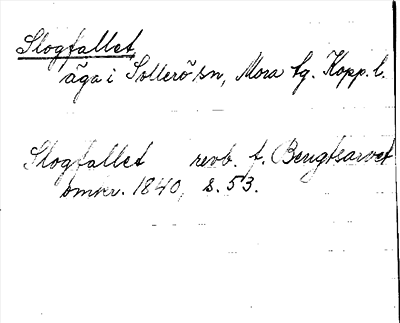 Slogfallet
äga i Sollerö sn, Mora tg. Kopp. l.
Slogfallet revb. f. Bengtsarvet
omkr. 1840, s. 53.